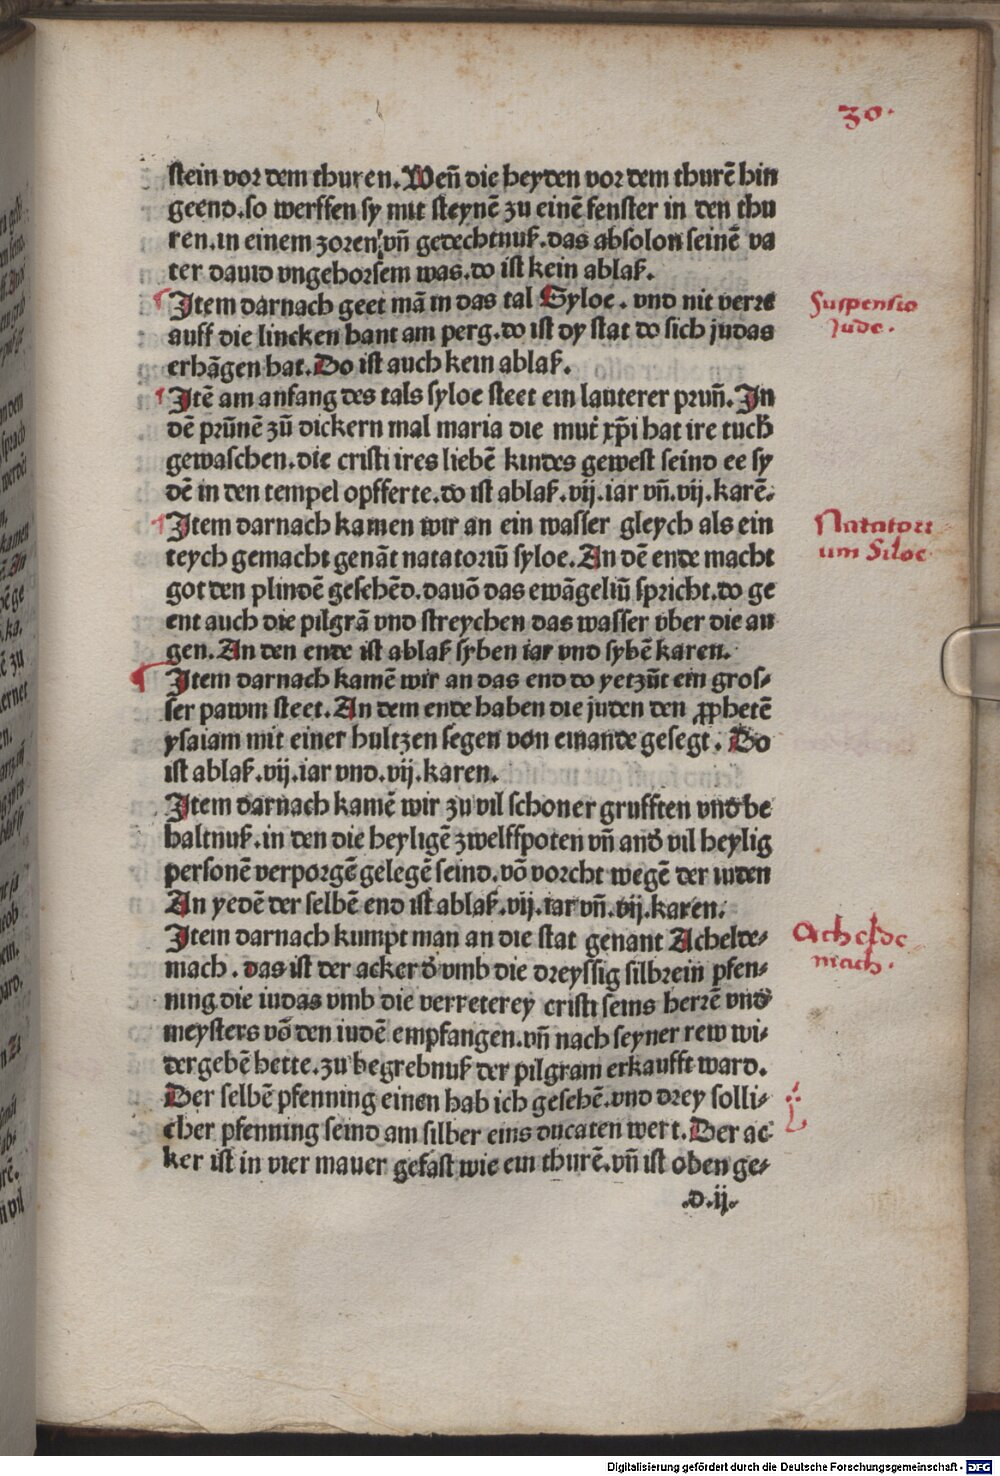 30.
stein vor dem thuren. Weñ die heyden vor dem thurē hin
geend. so werffen sy mit steynē zu einē fenster in den thu
ren. in einem zoren vñ gedechtnuß. das absolon seinē va
ter dauid vngehorsem was. do ist kein ablaß.
Item darnach geet mā in das tal Syloe. vnd nit verre
auff die lincken hant am perg. do ist dy stat do sich judas
erhāgen hat. Do ist auch kein ablaß.
Suspensio
Jude.
Itē am anfang des tals syloe steet ein lauterer prun̄. In
dē prūnē zū dickern mal maria die mut̄ xp̄i hat ire tuch
gewaschen. die cristi ires liebē kindes gewest seind ee sy
dē in den tempel opfferte. do ist ablaß. vij. iar vñ. vij. karē.
Item darnach kamen wir an ein wasser gleych als ein
teych gemacht genāt natatoriū syloe. An dē ende macht
got den plindē gesehēd. dauō das ewāgeliū spricht. do ge
ent auch die pilgrā vnd streychen das wasser vber die au
gen. An den ende ist ablaß syben iar vnd sybē karen.
Natatori
um Siloe
Item darnach kamē wir an das end do yetzūt ein gros-
ser pawm steet. An dem ende haben die juden den ꝓphetē
ysaiam mit einer hultzen segen von einande gesegt. Do
ist ablaß. vij. iar vnd. vij. karen.
Item darnach kamē wir zu vil schoner grufften vnd be
haltnuß. in den die heyligē zwelffpoten vñ and̄ vil heylig
personē verporgē gelegē seind. vō vorcht wegē der iuden
An yedē der selbē end ist ablaß. vij. iar vñ. vij. karen.
Item darnach kumpt man an die stat genant Achelde-
mach. das ist der acker d̄ vmb die dreyssig silbrein pfen-
ning die iudas vmb die verreterey cristi seins herrē vnd
meysters vō den iudē empfangen. vñ nach seyner rew wi-
dergebē hette. zu begrebnuß der pilgram erkaufft ward.
Der selbē pfenning einen hab ich gesehē. vnd drey solli-
cher pfenning seind am silber eins ducaten wert. Der ac-
ker ist in vier mauer gefast wie ein thurē. vñ ist oben ge-
Achelde
mach.
.d.ij.
Digitalisierung gefördert durch die Deutsche Forschungsgemeinschaft - DFG